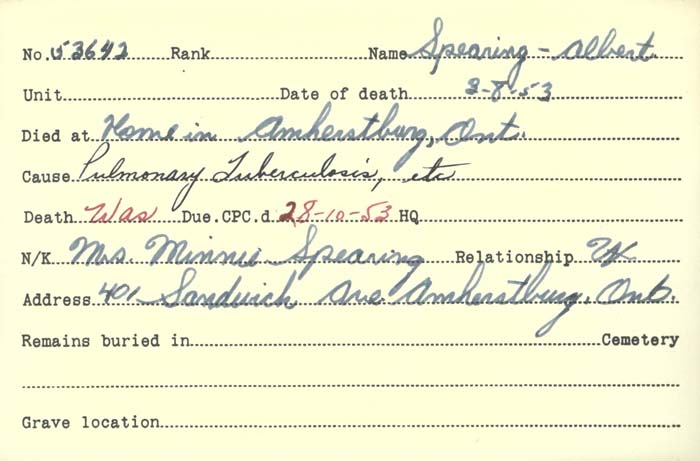 No. 53642 Rank Name Spearing - Albert
Unit Date of death 3-8-53
Died at Home in Amherstburg, Ont.
Cause Pulmonary Tuberculosis, etc
Death Was Due. CPC.d. 28-10-53 HQ
N/K Mrs. Minnie Spearing Relationship W
Address 401 Sandwich Ave. Amherstburg, Ont.
Remains buried in Cemetery
Grave location